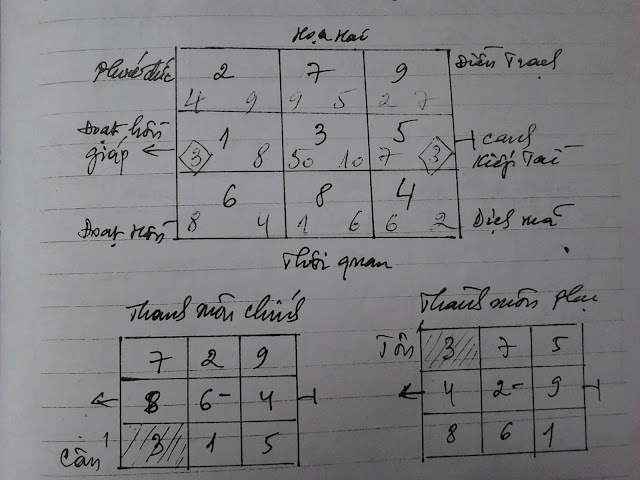 Họa Hại
Phước đức 2 7 9 Điền Trạch
4 9 9 5 2 7
Đoạt hồn 1 3 5 canh
giáp 3 8 50 10 7 3 Kiếp Tài
6 8 4
Đoạt hồn 8 4 1 6 6 2 Dịch mã
Thôi quan
Thành môn chính
7 2 9
8 6- 4
Cấn 3 1 5
Thành môn phụ
Tốn 3 7 5
4 2- 9
8 6 1